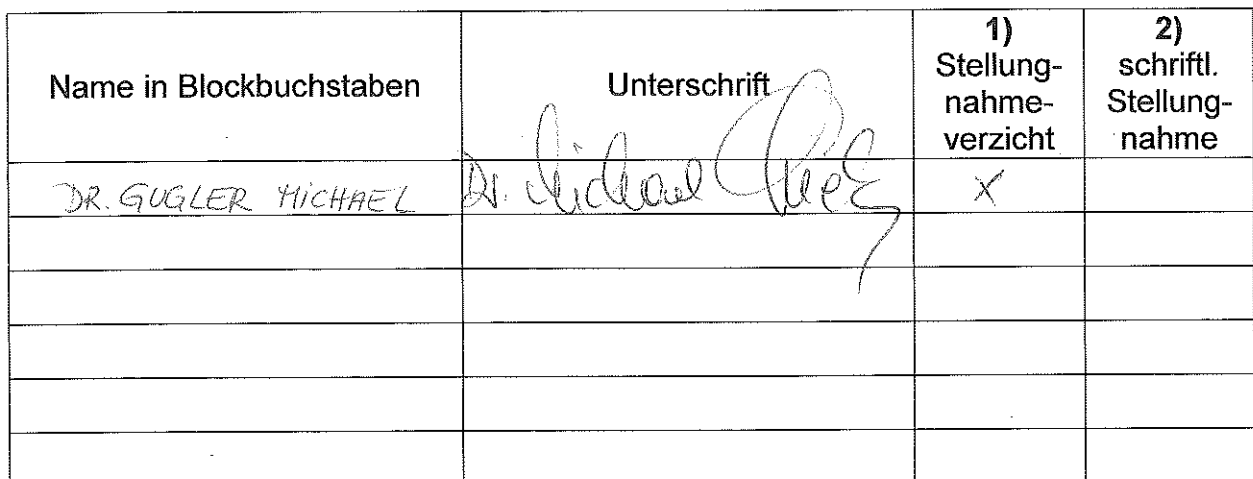 Name in Blockbuchstaben
Unterschrift
1)
Stellung-
nahme-
verzicht
2)
schriftl.
Stellung-
nahme
DR. GUGLER MICHAEL
Dr. Michael
X